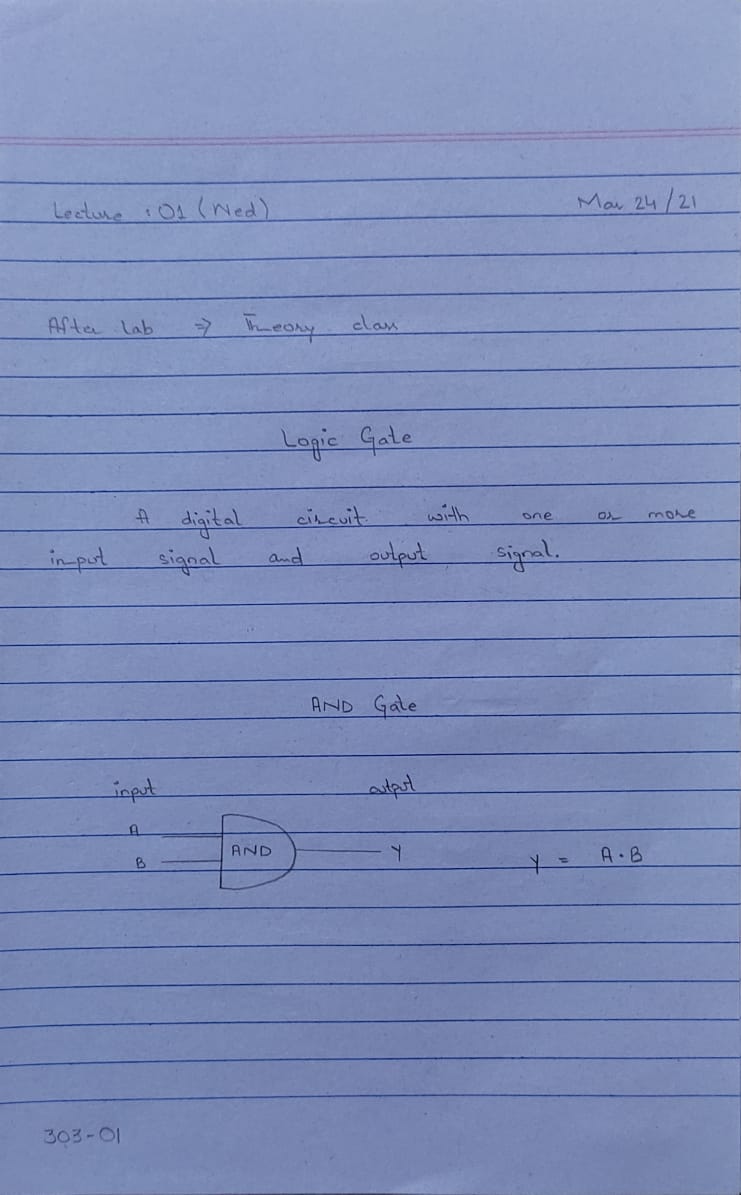 Lecture : 01 (Wed) Mar 24/21
After lab ⇒ Theory class
Logic Gate
A digital circuit with one or more
input signal and output signal.
AND Gate
input output
A
AND Y
B
Y = A·B
303-01